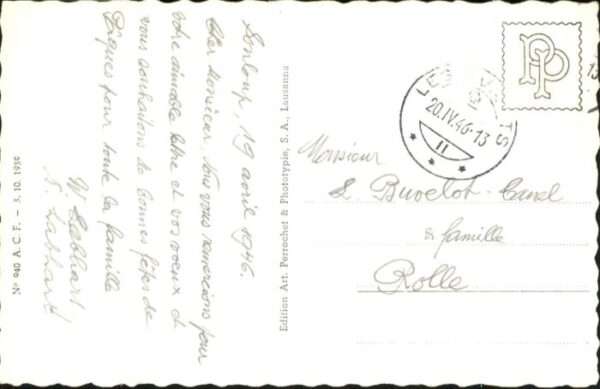 Sonloup, 19 avril 1946.
Cher Monsieur, Nous vous remercions pour
votre aimable lettre et vos voeux et
vous souhaitons de bonnes fêtes de
Pâques pour toute la famille
W Labhart
S. Labhart
Nº 940 A. C. F. – 3. 10. 1936
Edition Art. Perrochet & Phototypie, S. A., Lausanne
20.IV.46-13
II
PP
Monsieur
L. Buvelot-Canel
& famille
Rolle